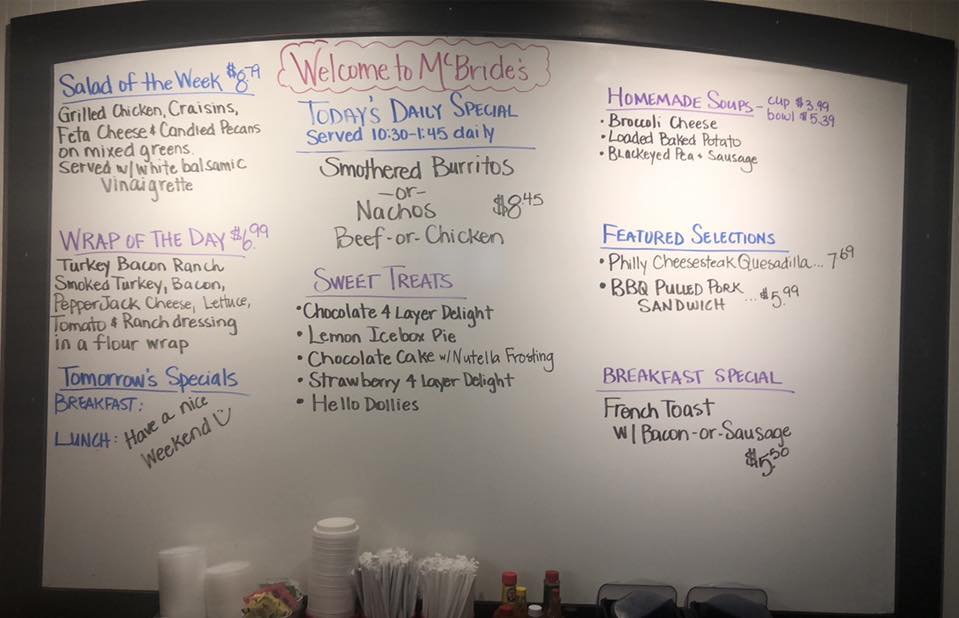 Welcome to McBride's
Salad of the Week $8.79
Grilled Chicken, Craisins,
Feta Cheese & Candied Pecans
on mixed greens.
Served w/white balsamic
Vinaigrette
WRAP OF THE DAY $6.99
Turkey Bacon Ranch
Smoked Turkey, Bacon,
PepperJack Cheese, Lettuce,
Tomato & Ranch dressing
in a flour wrap
Tomorrow's Specials
BREAKFAST:
LUNCH: Have a nice
Weekend
TODAY'S DAILY SPECIAL
Served 10:30-1:45 daily
Smothered Burritos
-or-
Nachos $8.45
Beef-or-Chicken
SWEET TREATS
• Chocolate 4 Layer Delight
• Lemon Icebox Pie
• Chocolate Cake w/Nutella Frosting
• Strawberry 4 Layer Delight
• Hello Dollies
HOMEMADE SOUPS - cup $3.99
bowl $5.39
• Broccoli Cheese
• Loaded Baked Potato
• Blackeyed Pea & Sausage
FEATURED SELECTIONS
• Philly Cheesesteak Quesadilla... 7.69
• BBQ PULLED PORK
SANDWICH ... $5.99
BREAKFAST SPECIAL
French Toast
w/Bacon-or-Sausage
$5.50